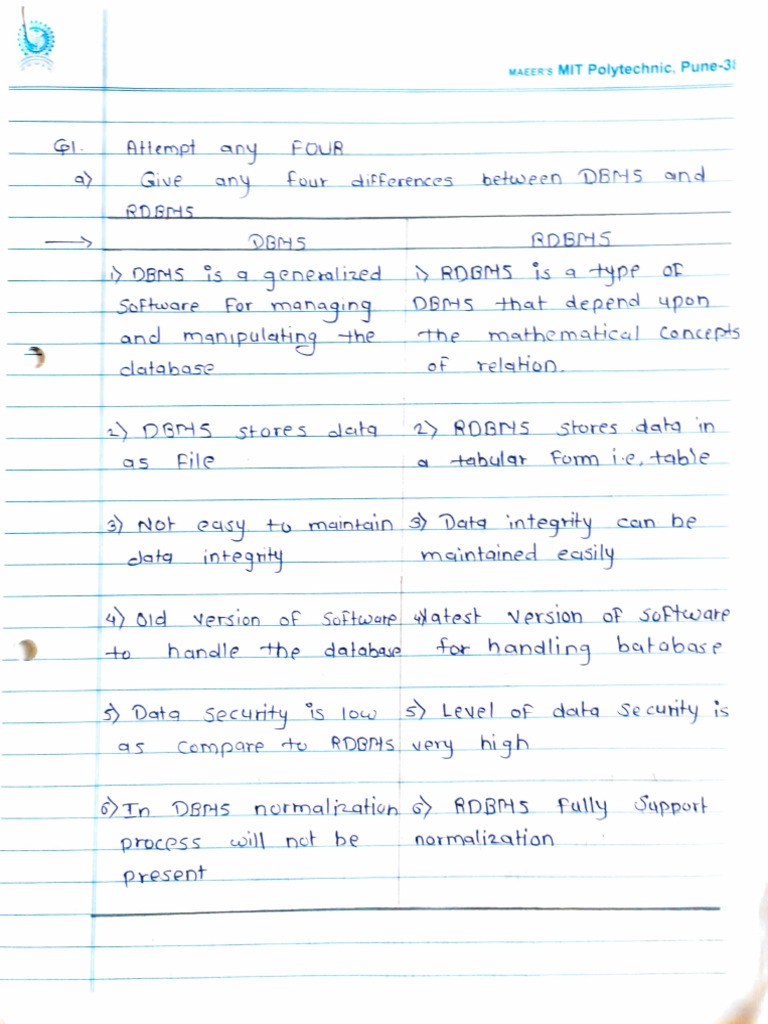 MAEER'S MIT Polytechnic, Pune-38
Q1. Attempt any FOUR
a) Give any four differences between DBMS and
RDBMS
DBMS RDBMS
1) DBMS is a generalized
software for managing
and manipulating the
database
1) RDBMS is a type of
DBMS that depend upon
the mathematical concepts
of relation.
2) DBMS stores data
as File
2) RDBMS stores data in
a tabular form i.e, table
3) Not easy to maintain
data integrity
3) Data integrity can be
maintained easily
4) Old version of software
to handle the database
4) latest version of software
for handling batabase
5) Data security is low
as compare to RDBMS
5) Level of data security is
very high
6) In DBMS normalization
process will not be
present
6) RDBMS fully support
normalization